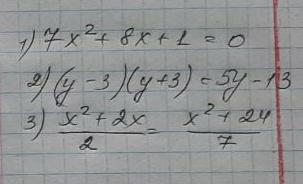 1) 7x² + 8x + 1 = 0
2) (y - 3)(y + 3) = 5y - 13
3) (x² + 2x)/2 = (x² + 24)/7